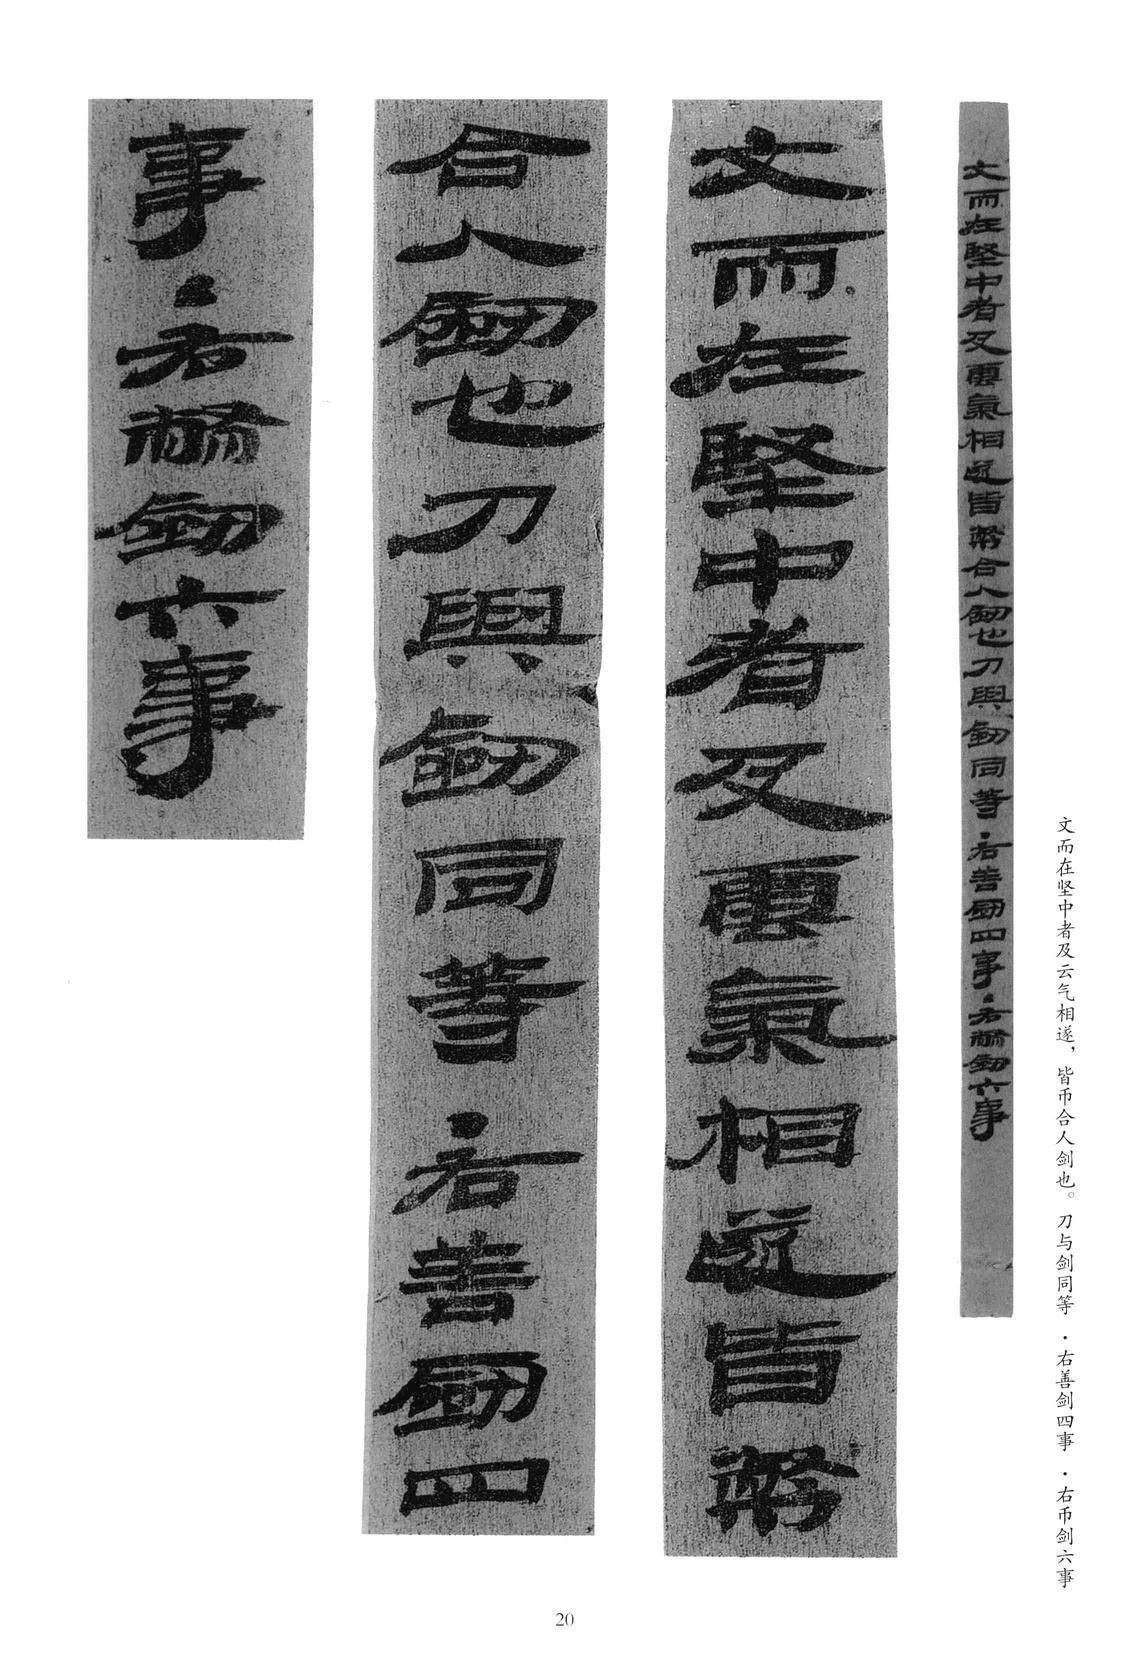 文而在坚中者及云气相遂，皆币合人剑也。刀与剑同等 ·右善剑四事 ·右币剑六事
文而在堅中者及雲氣相遂皆幣合人劒也刀與劒同等·右善劒四事·右幣劒六事
文而在堅中者及雲氣相遂皆幣
合人劒也刀與劒同等·右善劒四
事·右幣劒六事
20